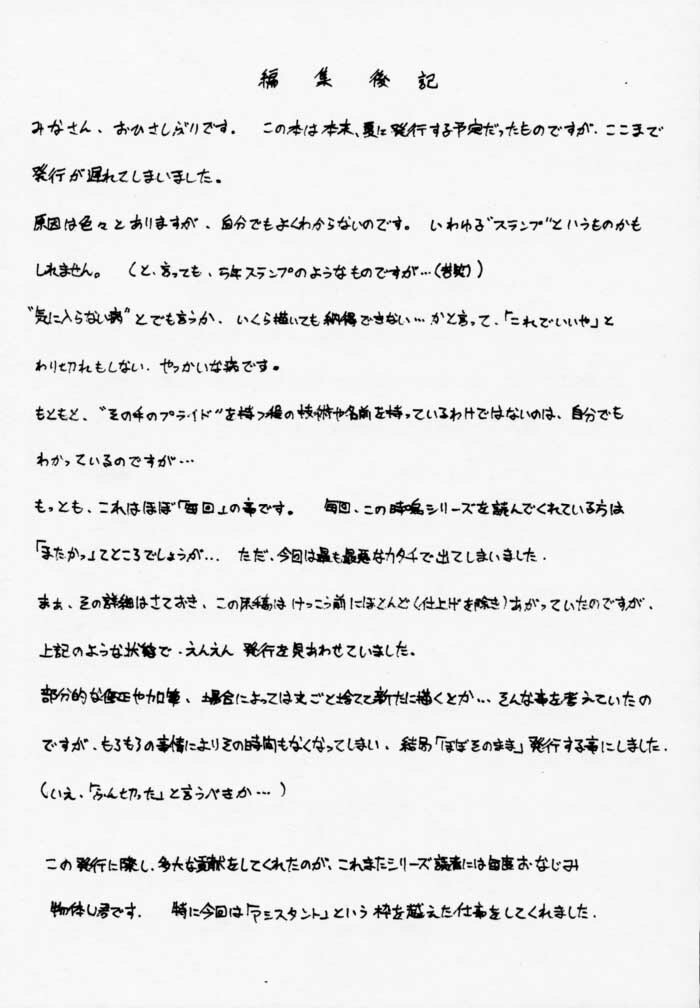 編集後記
みなさん、おひさしぶりです。 この本は本来、夏に発行する予定だったものですが、ここまで
発行が遅れてしまいました。
原因は色々とありますが、自分でもよくわからないのです。 いわゆる"スランプ"というものかも
しれません。 (と、言っても、万年スランプのようなものですが…(苦笑))
"気に入らない病"とでも言うか、いくら描いても納得できない…かと言って、「これでいいや」と
わり切れもしない、やっかいな病です。
もともと、"その手のプライド"を持つ程の技術や名前を持っているわけではないのは、自分でも
わかっているのですが…
もっとも、これはほぼ「毎回」の事です。 毎回、この時鳴シリーズを読んでくれている方は
「またかっ」てところでしょうが… ただ、今回は最も最悪なカタチで出てしまいました.
まぁ、その詳細はさておき、この原稿はけっこう前にほとんど(仕上げを除き)あがっていたのですが、
上記のような状態で、えんえん発行を見あわせていました。
部分的な修正や加筆、場合によっては丸ごと捨てて新たに描くとか…そんな事を考えていたの
ですが、もろもろの事情によりその時間もなくなってしまい、結局「ほぼそのまま」発行する事にしました.
(いえ、「ふん切った」と言うべきか…)
この発行に際し、多大な貢献をしてくれたのが、これまたシリーズ読者には毎度おなじみ
物体U君です. 特に今回は「アシスタント」という枠を越えた仕事をしてくれました.